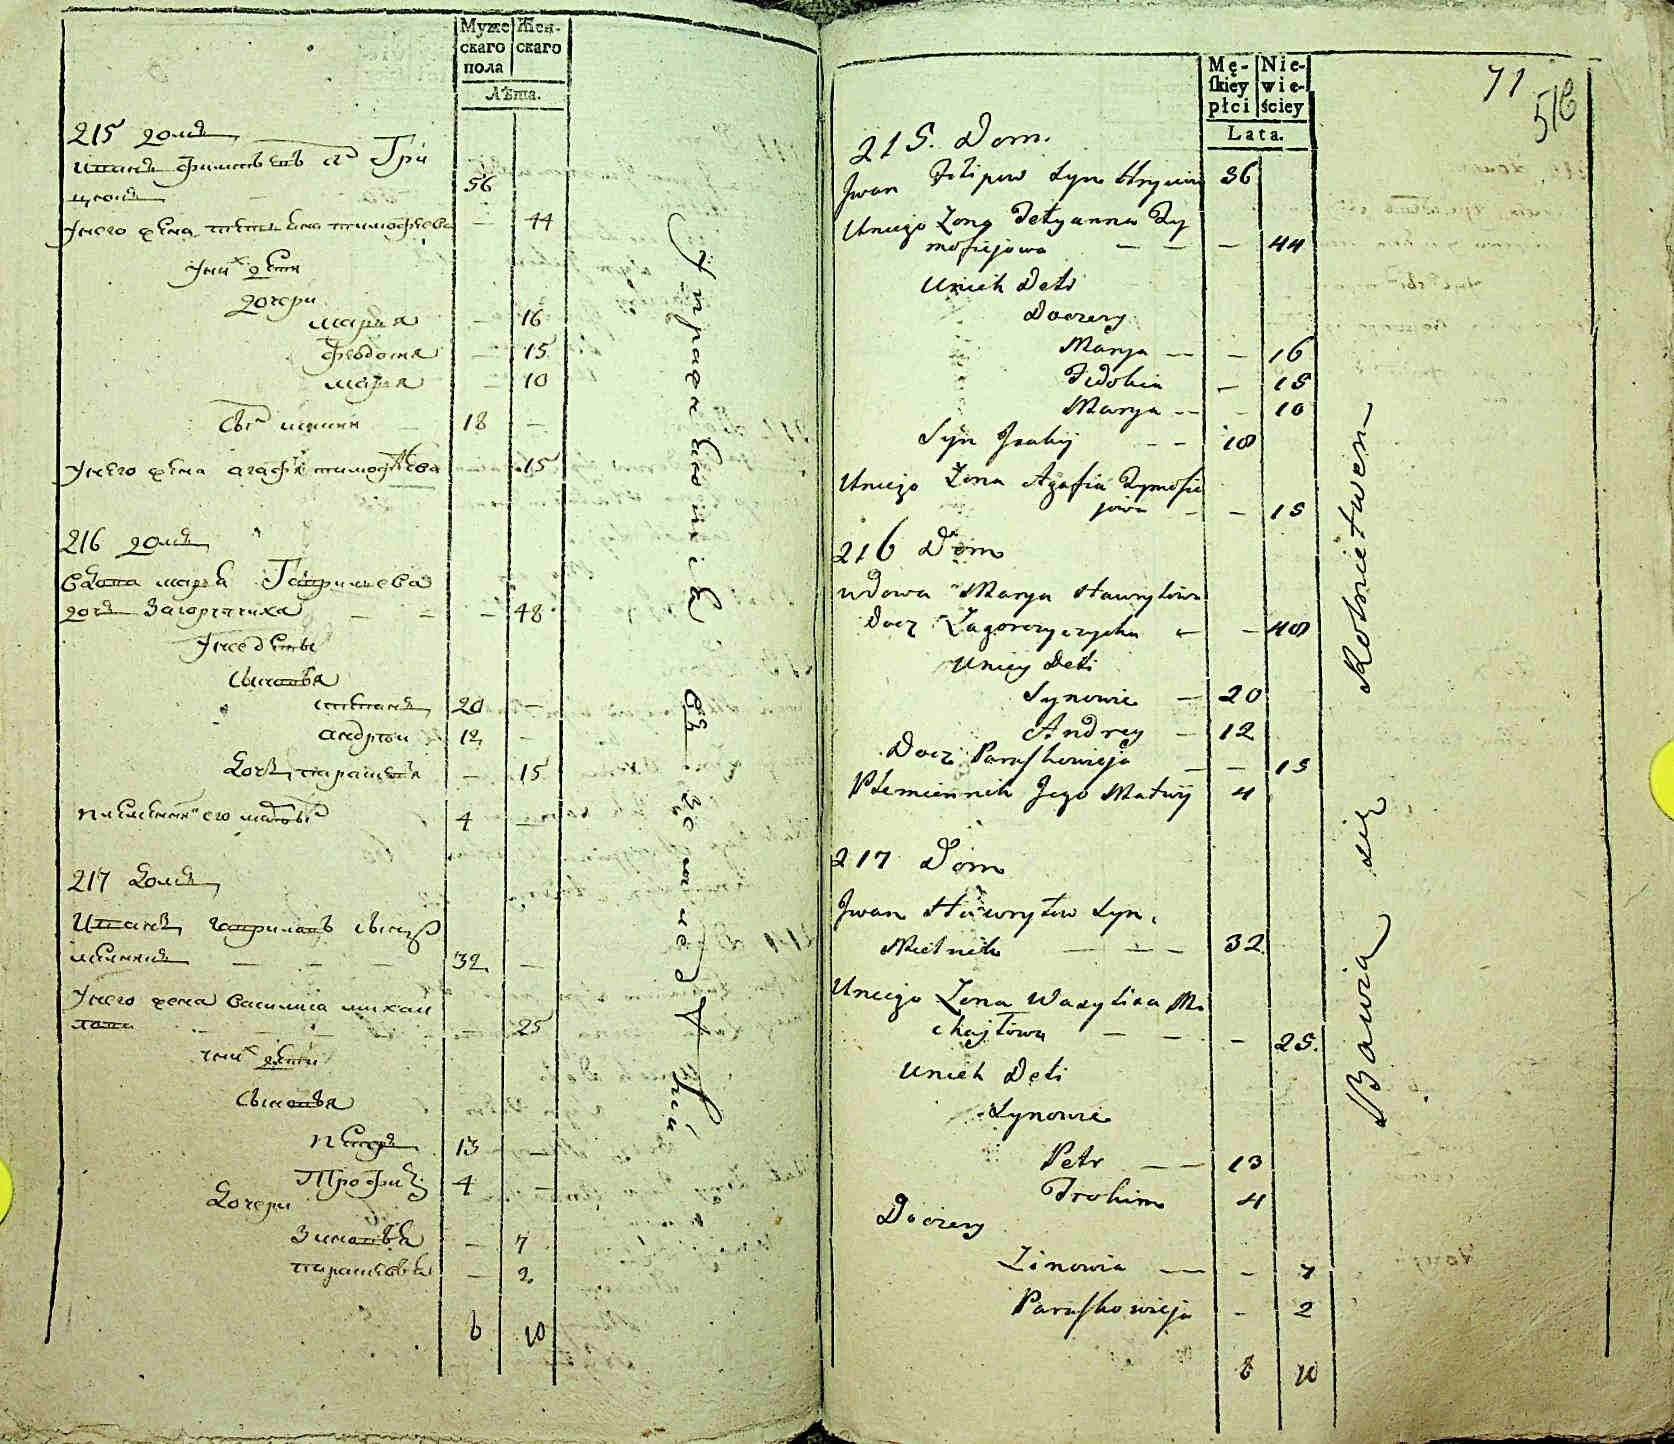 Муже
скаго
пола
Жен-
скаго
Лѣта.
215 домъ
Иванъ Филиповъ сꙋ Гри
цюкъ 56
У него жена татьяна тимофѣева — 44
У них дѣти
дочери
марья — 16
федосия — 15
марья — 10
Сынъ 18 —
У него жена агафия тимофѣева 15
216 домъ
вдова марья Гаврилева
дочь Загорчичиха — — — 48
У нее дѣти
Сыновья
степанъ 20 —
андрей 12 —
дочь парасковья — 15
племянникъ его матвѣй 4 —
217 домъ
Иванъ гавриловъ сынъ
мелникъ — — — 32 —
У него жена василиса михаи
лова — — — — 25
У них дѣти
Сыновья
петръ 13 —
Трофим 4 —
дочери
Зиновья — 7
парасковья — 2
6 10
Упражняются въ
Mę-
skiey
płci
Nie-
wie-
ściey
Lata.
71
516
215. Dom.
Jwan Filipow Syn Hryciuk 36
Uniego Żona Tetyanna Ty
mofiejowa — — — 44
Unich Deti
Doczery
Marya — — 16
Fedosia — 15
Marya — — 10
Syn — — 18
Uniego Żona Agafia Tymofie
jowa — — 15
216 Dom
wdowa Marya Hawryłowa
Docz Zagorczyczycha — — 48
Uniey Deti
Synowie — 20
Andrey — 12
Docz Paraskowieja — — 15
Plemiennik Jego Matwij 4
217 Dom
Jwan Hawryłow Syn.
Mielnik — — — 32
Uniego Żona Wasylisa Mi
chajłowa — — — 25.
Unich Deti
Synowie
Petr — — 13
Trohim 4
Doczery
Zinowia — — 7
Paraskowieja — 2
6 10
Bawią się Rolnictwem